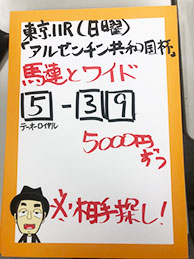 東京11R(日曜)
「アルゼンチン共和国杯」
馬連とワイド
5-39
テーオーロイヤル
5000円
ずつ
※相手探し!